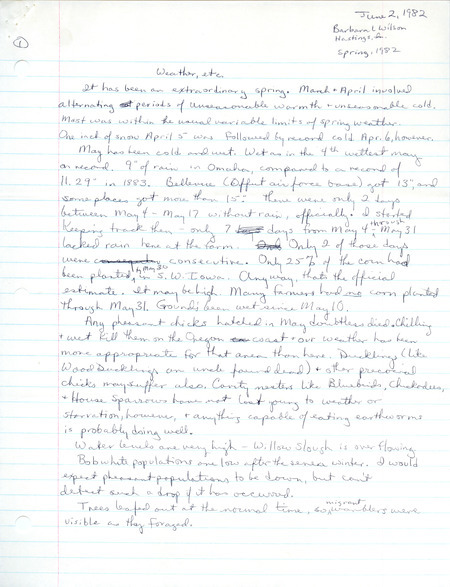 June 2, 1982
Barbara L. Wilson
Hastings, Ia.
Spring, 1982
1
Weather, etc.
It has been an extraordinary spring. March + April involved
alternating periods of unseasonable warmth + unseasonable cold.
Most was within the usual variable limits of spring weather.
One inch of snow April 5 was followed by record cold Apr. 6, however.
May has been cold and wet. Wet as in the 4th wettest may
on record. 9" of rain in Omaha, compared to a record of
11.29" in 1883. Bellevue (Offut air force base) got 13", and
some places got more than 15". there were only 2 days
between May 4 - May 17 w. without rain, officially. I started
Keeping track then - only 7 days from May 4 through May 31
lacked rain here at the farm. Only 2 of those days
were consecutive. Only 25% of the corn had
been planted by May 30 in S.W. Iowa. Anyway, thats the official
estimate. It may be high. Many farmers had no corn planted
through May 31. Ground's been wet since May 10.
Any pheasant chicks hatched in May doubtless died. Chilling
+ wet kill them on the Oregon coast + our weather has been
more appropriate for that area than here. Ducklings (like
Wood Ducklings my uncle found dead) + other precocial
chicks may suffer also. Cavity nesters like Bluebirds, Chickadees,
+ House Sparrows have not lost young to weather or
starvation, however, + anything capable of eating earthworms
is probably doing well.
Water levels are very high - Willow Slough is over flowing.
Bobwhite populations are low after the severe winter. I would
expect pheasant populations to be down, but can't
detect such a drop if it has occurred.
Trees leafed out at the normal time, so migrant warblers were
visible as they foraged.